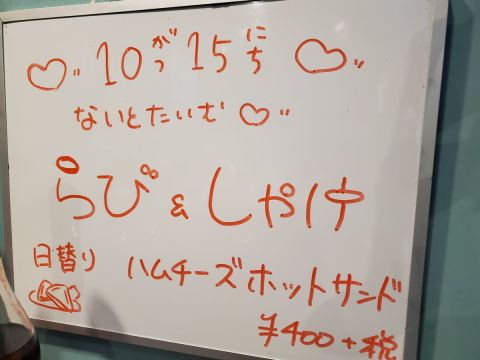 10がつ15にち
ないとたいむ
らび&しゃけ
日替り ハムチーズホットサンド
¥400+税